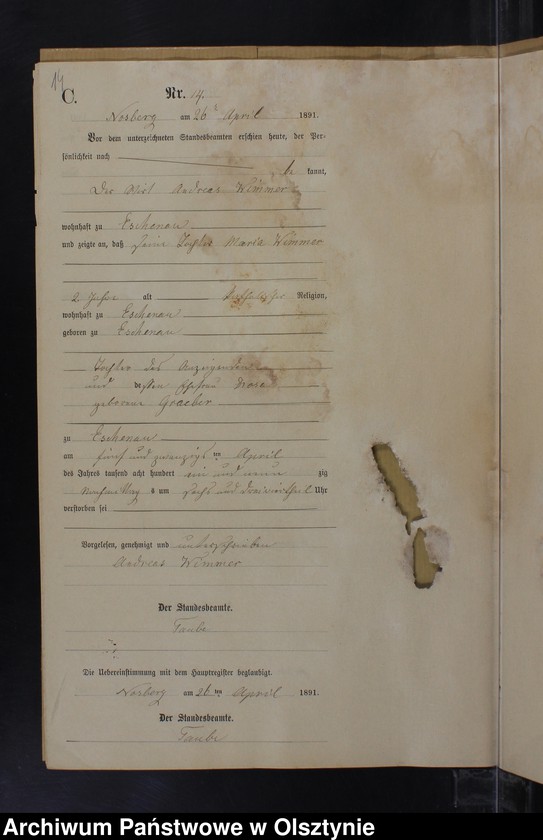 14
C.
Nr. 14.
Nosberg am 26 April 1891.
Vor dem unterzeichneten Standesbeamten erschien heute, der Per-
sönlichkeit nach
be kannt,
Der Wirt Andreas Wimmer
wohnhaft zu Eschenau
und zeigte an, daß seine Tochter Maria Wimmer
2 Jahre alt katholischer Religion,
wohnhaft zu Eschenau
geboren zu Eschenau
Tochter des Anzeigenden
und dessen Ehefrau Rosa
geborene Graeber
zu Eschenau
am fünf und zwanzigs ten April
des Jahres tausend acht hundert ein und neun zig
Nachmittag s um sechs und dreiviertel Uhr
verstorben sei
Vorgelesen, genehmigt und unterschrieben
Andreas Wimmer
Der Standesbeamte.
Taube
Die Uebereinstimmung mit dem Hauptregister beglaubigt.
Nosberg am 26 ten April 1891.
Der Standesbeamte.
Taube
Archiwum Państwowe w Olsztynie